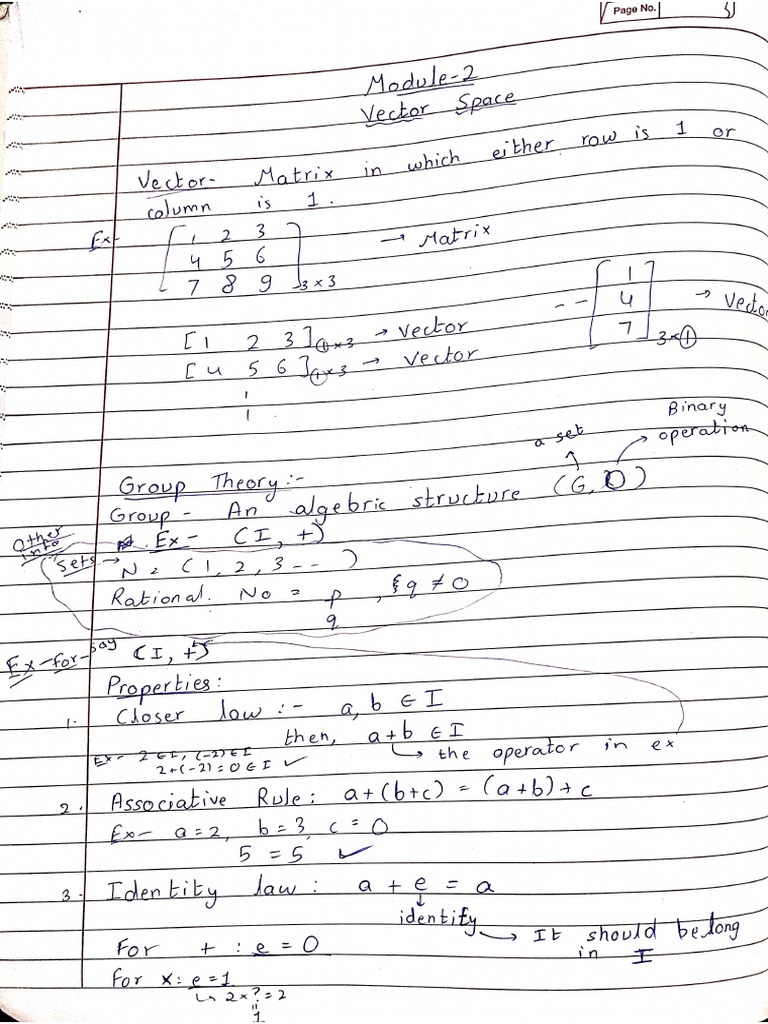 Page No. 3
Module-2
Vector Space
Vector- Matrix in which either row is 1 or
column is 1.
Ex- [ 1 2 3
4 5 6
7 8 9 ]3×3 → Matrix
[ 1
4
7 ]3×1 → Vector
[1 2 3]1×3 → vector
[4 5 6]1×3 → vector
Group Theory:-
a set
Binary operation
Group - An algebric structure (G, O)
Ex- (I, +)
Other info
Sets → N = (1, 2, 3 - - )
Rational No = p/q , {q ≠ 0
Ex-for-say (I, +)
Properties:
1. Closer law :- a, b ∈ I
then, a+b ∈ I
↳ the operator in ex
Ex- 2 ∈ I, (-2) ∈ I
2+(-2) = 0 ∈ I ✓
2. Associative Rule: a+(b+c) = (a+b)+c
Ex- a=2, b=3, c=0
5 = 5 ✓
3. Identity law: a + e = a
identify → It should belong
in I
For + : e = 0
For x: e=1
↳ 2×? = 2
=
1